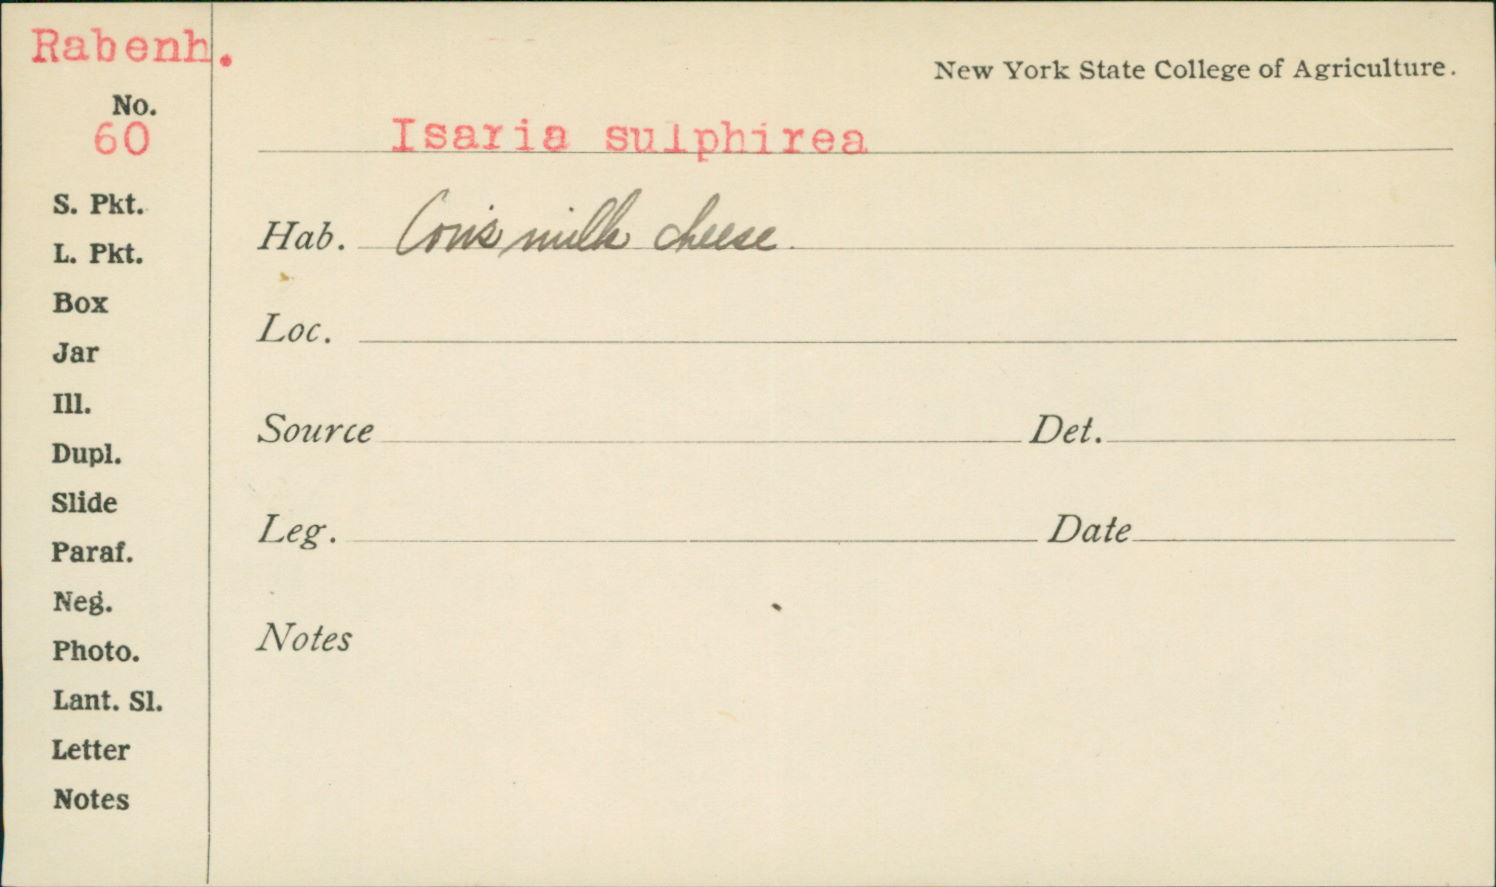 Rabenh.
New York State College of Agriculture.
No.
60
Isaria sulphirea
S. Pkt.
Hab. Cow's milk cheese
L. Pkt.
Box
Loc.
Jar
Ill.
Source Det.
Dupl.
Slide
Leg. Date
Paraf.
Neg.
Notes
Photo.
Lant. Sl.
Letter
Notes